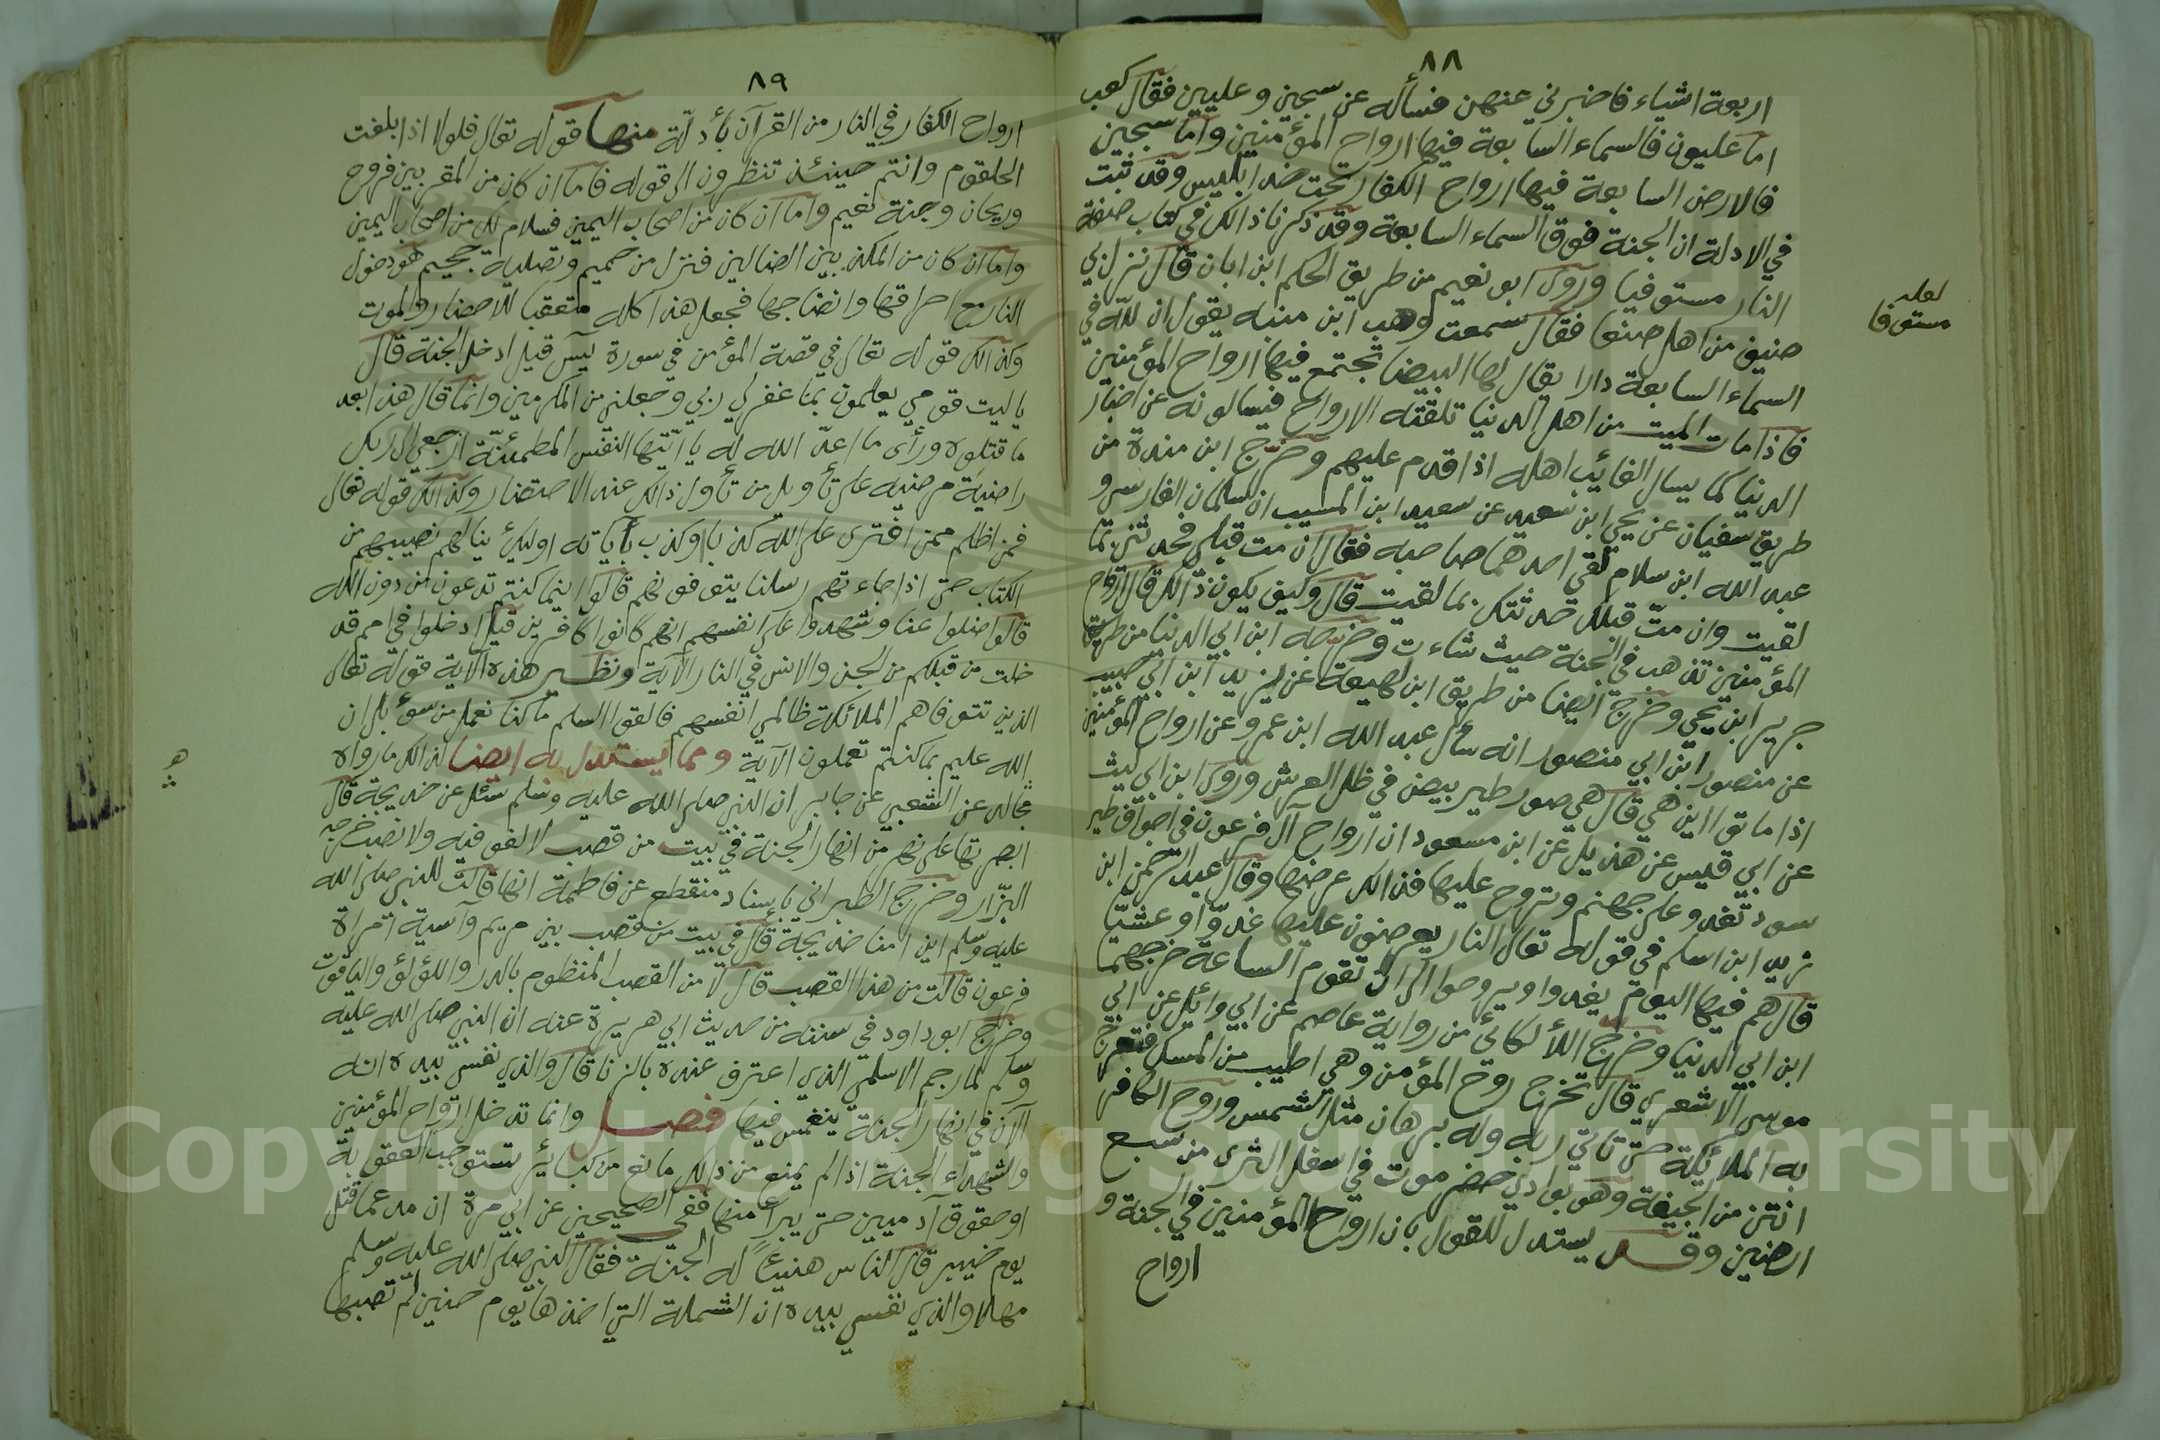 ٨٨
اربعة اشياء فاخبرني عنهن فسأله عن سجين وعليين فقال كعب
اما عليون فالسماء السابعة فيها ارواح المؤمنين واما سجين
فالارض السابعة فيها ارواح الكفار تحت خد ابليس وقد ثبت
في الادلة ان الجنة فوق السماء السابعة وقد ذكرنا ذالك في كتاب صفة
النار مستوفيا وروى ابو نعيم من طريق الحكم ابن ابان قال نزل بي
لعله
مستوفا
ضيف من اهل صنعا فقال سمعت وهب ابن منبه يقول ان لله في
السماء السابعة دارا يقال لها البيضا تجتمع فيها ارواح المؤمنين
فاذا مات الميت من اهل الدنيا تلقته الارواح فيسالونه عن اخبار
الدنيا كما يسال الغائب اهله اذا قدم عليهم وخرج ابن مندة من
طريق سفيان عن يحي ابن سعيد عن سعيد ابن المسيب ان سلمان الفارسي و
عبد الله ابن سلام لقي احدهما صاحبه فقال ان مت قبلي فحدثني بما
لقيت وان متّ قبلك حدثتك بما لقيت قال وكيف يكون ذالك قال ارواح
المؤمنين تذهب في الجنة حيث شاءت وخرجه ابن ابي الدنيا من طريق
جرير ابن يحي وخرج ايضا من طريق ابن لهيعة عن يزيد ابن ابي حبيب
عن منصور ابن ابي منصور انه سأل عبد الله ابن عمرو عن ارواح المؤمنين
اذا ماتوا اين هي قال هي صور طير بيض في ظل العرش وروى ابن ابي ليث
عن ابي قيس عن هذيل عن ابن مسعود ان ارواح آل فرعون في اجواف طير
سود تغدو على جهنم وتروح عليها فذالك عرضها وقال عبد الرحمن ابن
زيد ابن اسلم في قوله تعالى النار يعرضون عليها غدوّا وعشيّا
قال هم فيها اليوم يغدوا ويروحوا الى ان تقوم الساعة خرجهما
ابن ابي الدنيا وخرج اللألكائي من رواية عاصم عن ابي وائل عن ابي
موسى الاشعري قال تخرج روح المؤمن وهي اطيب من المسك فتعرج
به الملائكة حتى تاتي ربه وله برهان مثل الشمس وروح الكافر
انتن من الجيفة وهو بوادي حضرموت في اسفل الثرى من سبع
ارضين وقد يستدل للقول بان ارواح المؤمنين في الجنة و
ارواح
٨٩
ارواح الكفار في النار من القرآن بأدلّة منها قوله تعالى فلولا اذا بلغت
الحلقوم وانتم حينئذ تنظرون الى قوله فاما ان كان من المقربين فروح
وريحان وجنة نعيم واما ان كان من اصحاب اليمين فسلام لك من اصحاب اليمين
واما ان كان من المكذبين الضالين فنزل من حميم وتصلية جحيم هو دخول
النار مع احراقها وانضاجها فجعل هذا كله متعقبا للاحضار والموت
وكذالك قوله تعالى في قصة المؤمن في سورة يس قيل ادخل الجنة قال
ياليت قومي يعلمون بما غفر لي ربي وجعلني من المكرمين وانما قال هذا بعد
ما قتلوه ورأى ما اعدّ الله له يا ايتها النفس المطمئنّة ارجعي الى ربك
راضية مرضيه على تأويل من تأول ذالك عند الاحتضار وكذالك قوله تعالى
فمن اظلم ممن افترى على الله كذبا او كذب بأياته اوليك ينالهم نصيبهم من
الكتاب حتى اذا جاءتهم رسلنا يتوفونهم قالوا اينما كنتم تدعون من دون الله
قالوا ضلوا عنا وشهدوا على انفسهم انهم كانوا كافرين قيل ادخلوا في امم قد
خلت من قبلكم من الجن والانس في النار الاية ونظير هذه الاية قوله تعالى
الذين تتوفاهم الملائكة ظالمي انفسهم فالقوا السلم ما كنا نعمل من سوٴ بلى ان
الله عليم بما كنتم تعملون الآية ومما يستدل به ايضا لذالك ما رواه
مجالد عن الشعبي عن جابر ان النبي صلى الله عليه وسلم سئل عن خديجة قال
ابصرتها على نهر من انهار الجنة في بيت من قصب لا لغو فيه ولا نصب خرجه
البزّار وخرج الطبراني باسناد منقطع عن فاطمة انها قالت للنبي صلى الله
عليه وسلم اين امنا خديجة قال في بيت من قصب بين مريم وآسية امراة
فرعون قالت من هذا القصب قال لا من القصب المنظوم بالدر واللؤلؤ والياقوت
وخرج ابو داود في سننه من حديث ابي هريرة عنه ان النبي صلى الله عليه
وسلم لما رجم الاسلمي الذي اعترف عنده بالزنا قال والذي نفسي بيده انه
الآن في انهار الجنة ينغمس فيها فصل وانما تدخل ارواح المؤمنين
والشهداء الجنة اذا لم يمنع من ذالك مانع من كبائر تستوجب العقوبة
او حقوق آدميين حتى يبرأ منها ففي الصحيحين عن ابي مرة ان مدعما قتل
يوم خيبر قال الناس هنيئًا له الجنة فقال النبي صلى الله عليه وسلم
مهلا والذي نفسي بيده ان الشملة التي اخذها يوم حنين لم تصبها
Copyright © King Saud University